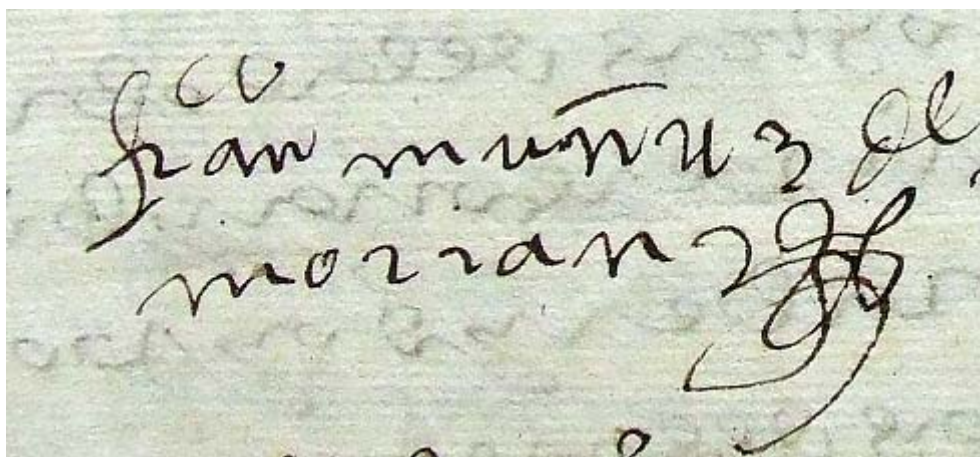 fran^co muñuz de
morran